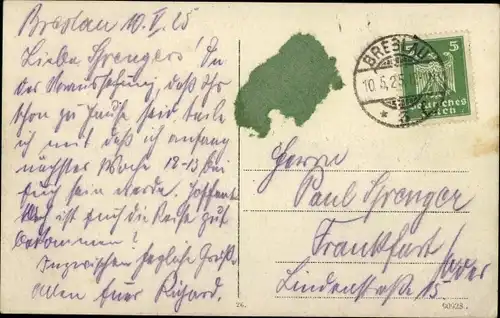 Breslau 10. V. 25
Liebe Sprengers! In
der Voraussetzung, daß Ihr
schon zu Hause seid teile
ich mit daß ich anfang
nächster Woche 12-13 bei
Euch sein werde. Hoffent-
lich ist Euch die Reise gut
bekommen!
Inzwischen herzliche Grüße
allen Euer Richard.
BRESLAU
10.5.25
5
Deutsches
Reich
Herrn
Paul Sprenger
Frankfurt/
Oder
Lindenstraße 15
26.
90928.